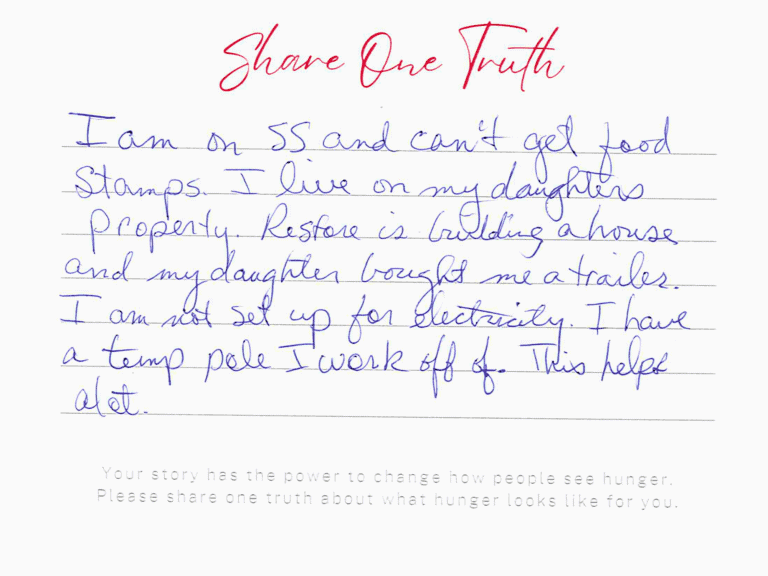 Share One Truth
I am on SS and can't get food
Stamps. I live on my daughters
Property. Restore is building a house
and my daughter bought me a trailer.
I am not set up for electricity. I have
a temp pole I work off of. This helps
alot.
Your story has the power to change how people see hunger.
Please share one truth about what hunger looks like for you.